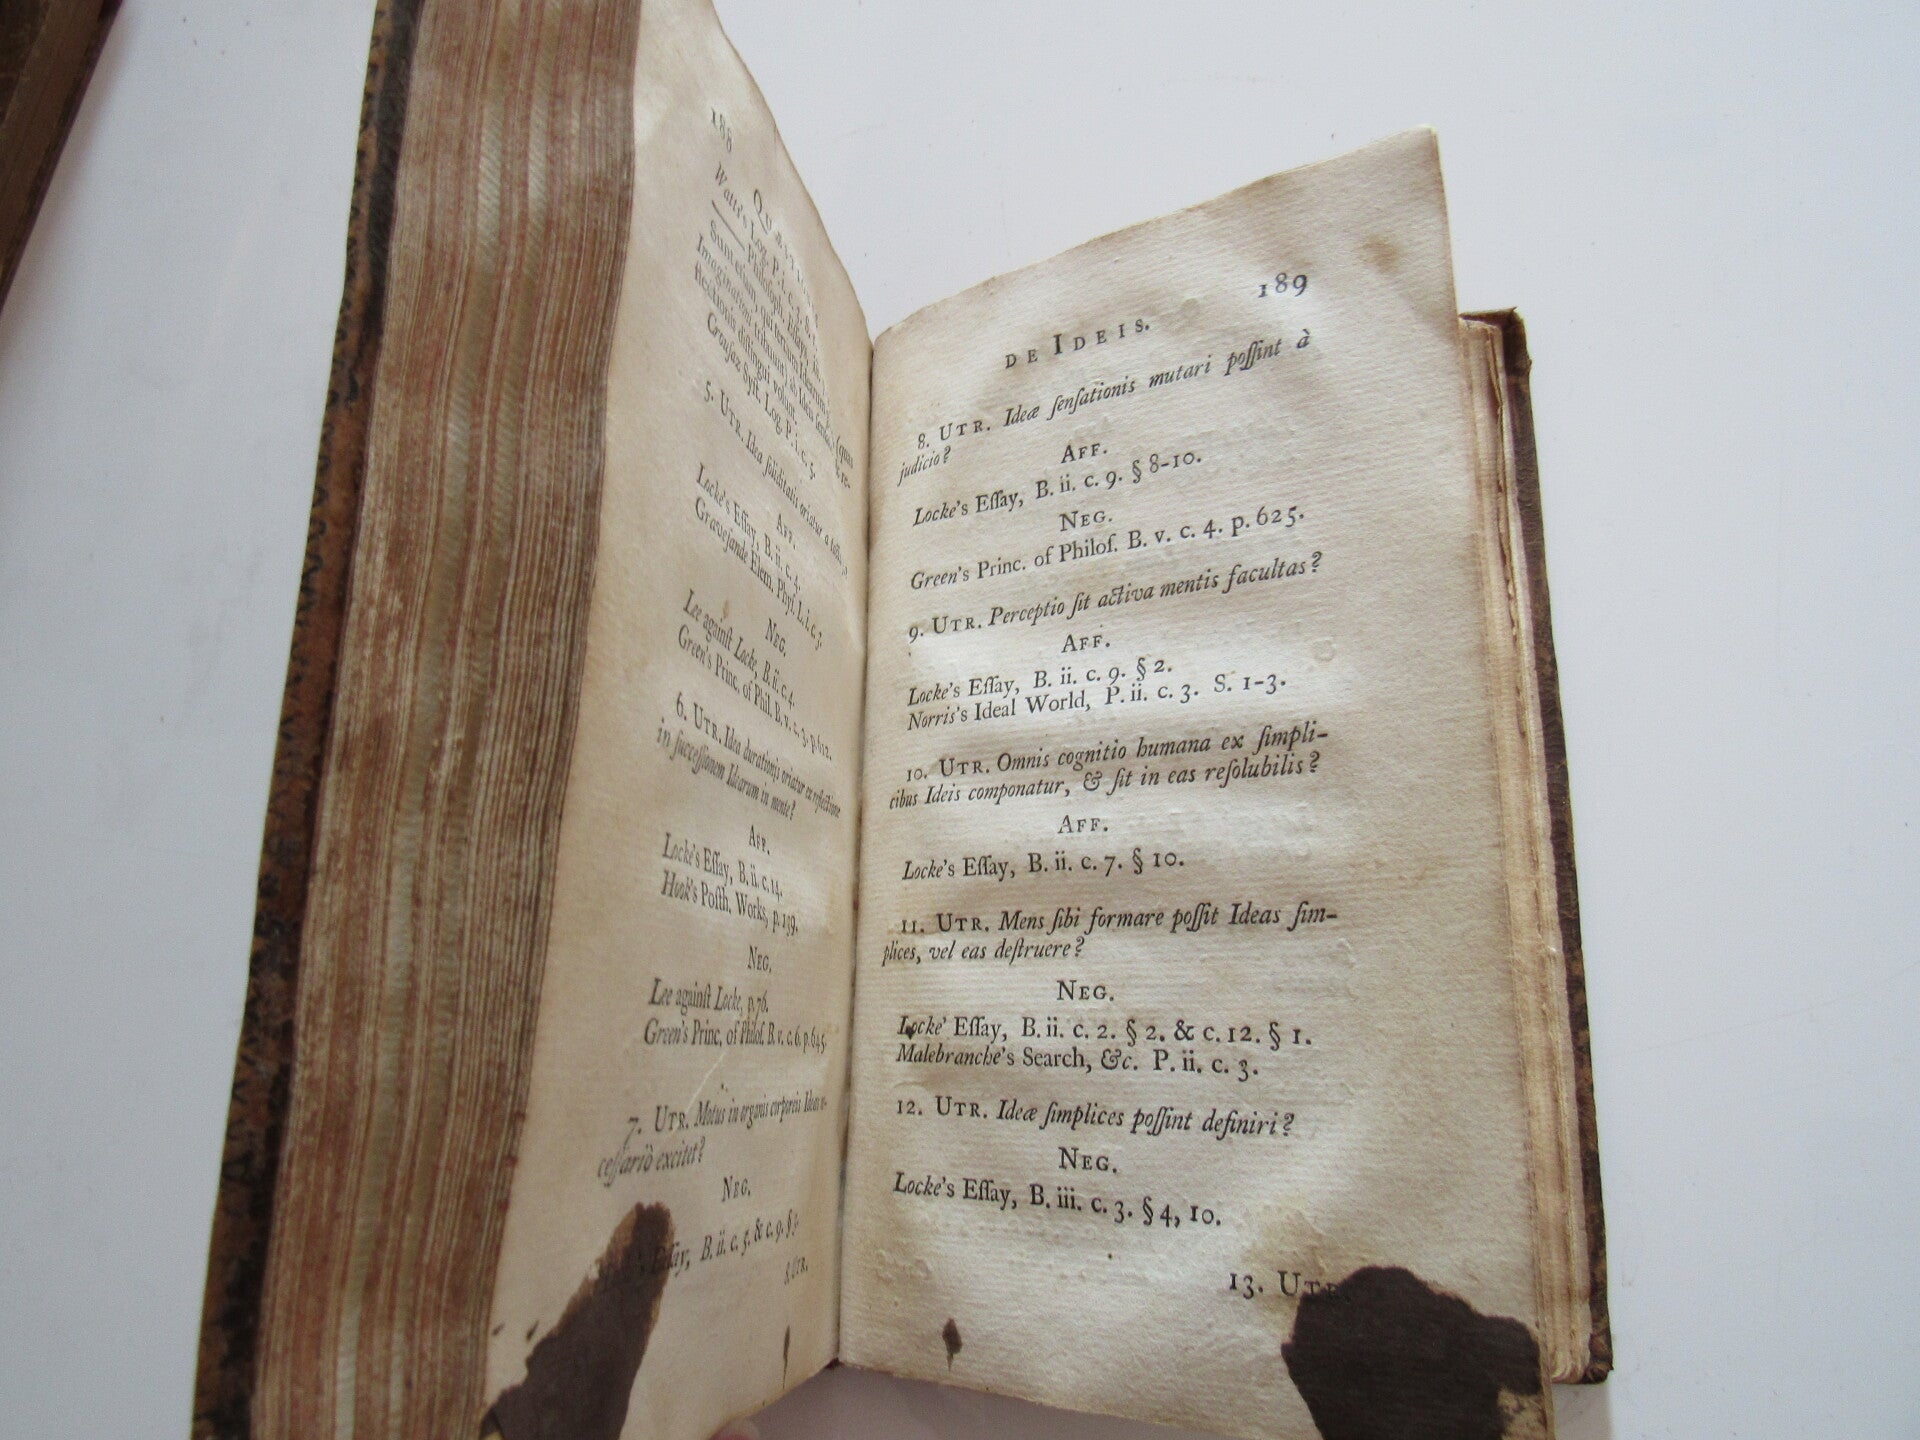 188 QUÆSTIONES
Watts's Log. P. i. c. 3.
Philosoph. Essays,
Sunt etiam, qui tertium Idearum (quas
Imaginationi tribuunt) ab Ideis re-
flectionis distingui volunt.
Crousaz Syst. Log. P. i. c. 5.
5. UTR. Idea soliditatis oriatur a tactu?
AFF.
Locke's Essay, B. ii. c. 4.
Gravesande Elem. Phys. L. i. c. 3.
NEG.
Lee against Locke, B. ii. c. 4.
Green's Princ. of Phil. B. v. c. 3. p. 612.
6. UTR. Idea durationis oriatur ex reflectione
in successionem Idearum in mente?
AFF.
Locke's Essay, B. ii. c. 14.
Hook's Posth. Works, p. 139.
NEG.
Lee against Locke, p. 76.
Green's Princ. of Philos. B. v. c. 6. p. 645.
7. UTR. Motus in organis corporeis Ideas ne-
cessariò excitet?
NEG.
Essay, B. ii. c. 5. & c. 9. § 3.
8 UTR.
DE IDEIS. 189
8. UTR. Ideæ sensationis mutari possint à
judicio?
AFF.
Locke's Essay, B. ii. c. 9. § 8-10.
NEG.
Green's Princ. of Philos. B. v. c. 4. p. 625.
9. UTR. Perceptio sit activa mentis facultas?
AFF.
Locke's Essay, B. ii. c. 9. § 2.
Norris's Ideal World, P. ii. c. 3. S. 1-3.
10. UTR. Omnis cognitio humana ex simpli-
cibus Ideis componatur, & sit in eas resolubilis?
AFF.
Locke's Essay, B. ii. c. 7. § 10.
11. UTR. Mens sibi formare possit Ideas sim-
plices, vel eas destruere?
NEG.
Locke' Essay, B. ii. c. 2. § 2. & c. 12. § 1.
Malebranche's Search, &c. P. ii. c. 3.
12. UTR. Ideæ simplices possint definiri?
NEG.
Locke's Essay, B. iii. c. 3. § 4, 10.
13. UTR.